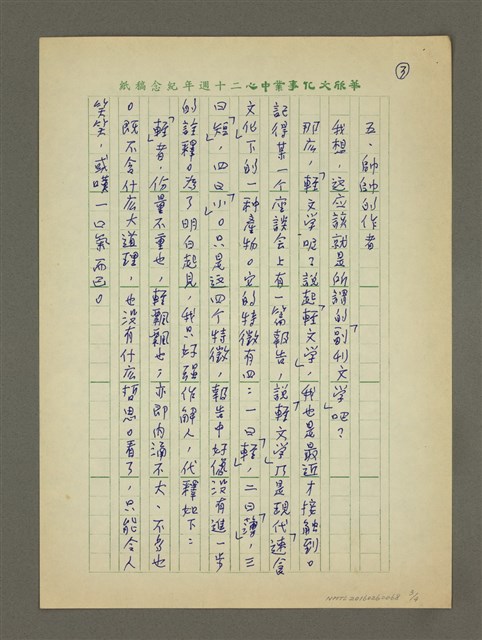 ③
華視文化事業中心二十週年紀念稿紙
五、帥帥的作者
我想，这应該就是所謂的「副刊文学」吧？
那広，「軽文学」呢？說起「軽文学」，我也是最近才接触到。
記得某一个座談会上有一篇報告，說「軽文学」乃是現代「速食
文化」下的一种產物。它的特徵有四：一曰「軽」，二曰「薄」，三
曰「短」，四曰「小」。只是这四个特徵，報告中好像没有進一步
的詮釋。为了明白起見，我只好强作解人，代釋如下：
「軽」者，份量不重也，軽飄飄也；亦即内涵不大、不多也
。既不含什広大道理，也没有什広哲思。看了，只能令人
笑笑，或嘆一口氣而已。
NMTL20160260068
3/4